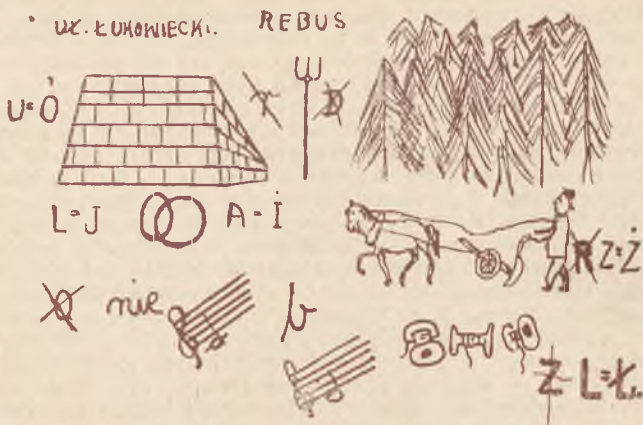 WŁ. ŁUKOWIECKI. REBUS
U=Ó T D
L=J A=I
R Z=Ż
O nie b
Z L=Ł.